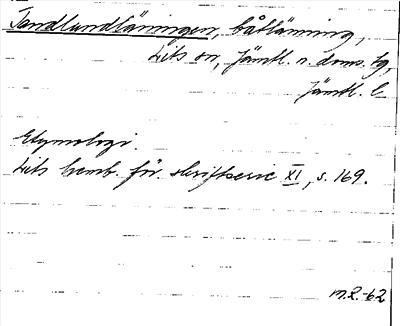 Sandlundläningen, båtlänning,
Lits sn, Jämtl. n. doms. tg,
Jämtl. l.
Etymologi.
Lits hemb. för. skriftserie XI, s. 169.
M.R.-62